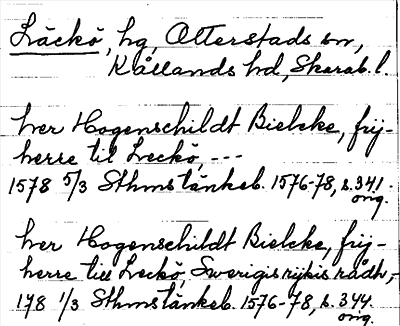 Läckö, hg, Otterstads sn,
Kållands hd, Skarab. l.
her Hogenschildt Bielcke, frij-
herre til Leckö, ---
1578 5/3 Sthms tänkeb. 1576-78, s. 341.
orig.
her Hogenschildt Bielcke, frij-
herre till Leckö, Swerigis rijkis rådh,-
178 1/3 Sthms tänkeb. 1576-78, s. 344.
orig.